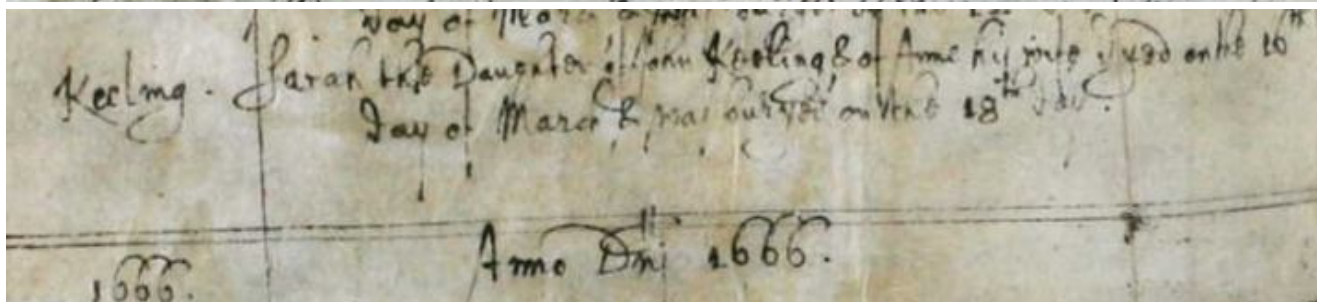 day of March & was buryed on the
Keeling. Sarah the Daughter of John Keeling & of Anne his wife dyed on the 16th
day of March & was buryed on the 18th day.
Anno Dni 1666.
1666.